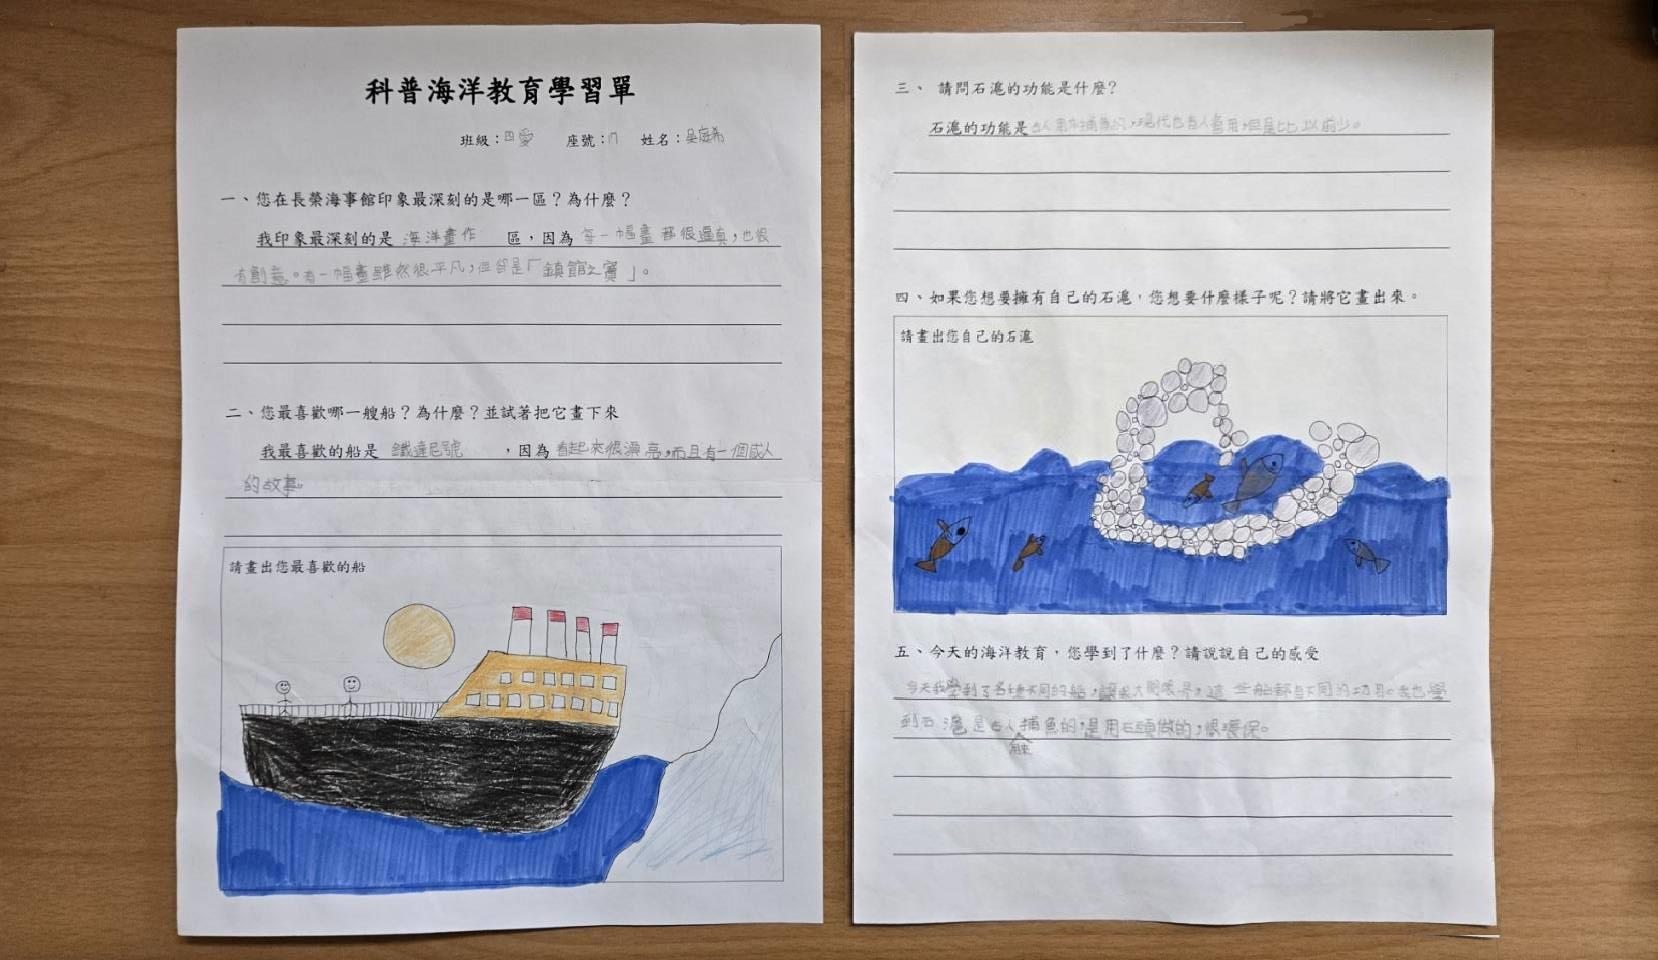 科普海洋教育學習單
班級：四愛 座號：17 姓名：吳庭希
一、您在長榮海事館印象最深刻的是哪一區？為什麼？
我印象最深刻的是 海洋畫作 區，因為 每一幅畫都很逼真，也很
有創意。有一幅畫雖然很平凡，但卻是「鎮館之寶」。
二、您最喜歡哪一艘船？為什麼？並試著把它畫下來
我最喜歡的船是 鐵達尼號 ，因為 看起來很漂亮，而且有一個感人
的故事。
請畫出您最喜歡的船
三、 請問石滬的功能是什麼？
石滬的功能是古人用來捕魚的，現代也有人會用，但是比以前少。
四、如果您想要擁有自己的石滬，您想要什麼樣子呢？請將它畫出來。
請畫出您自己的石滬
五、今天的海洋教育，您學到了什麼？請說說自己的感受
今天我學到了各種不同的船，讓我大開眼界，這些船都有不同的功用。我也學
到石滬是古人用來捕魚的，是用石頭做的，很環保。